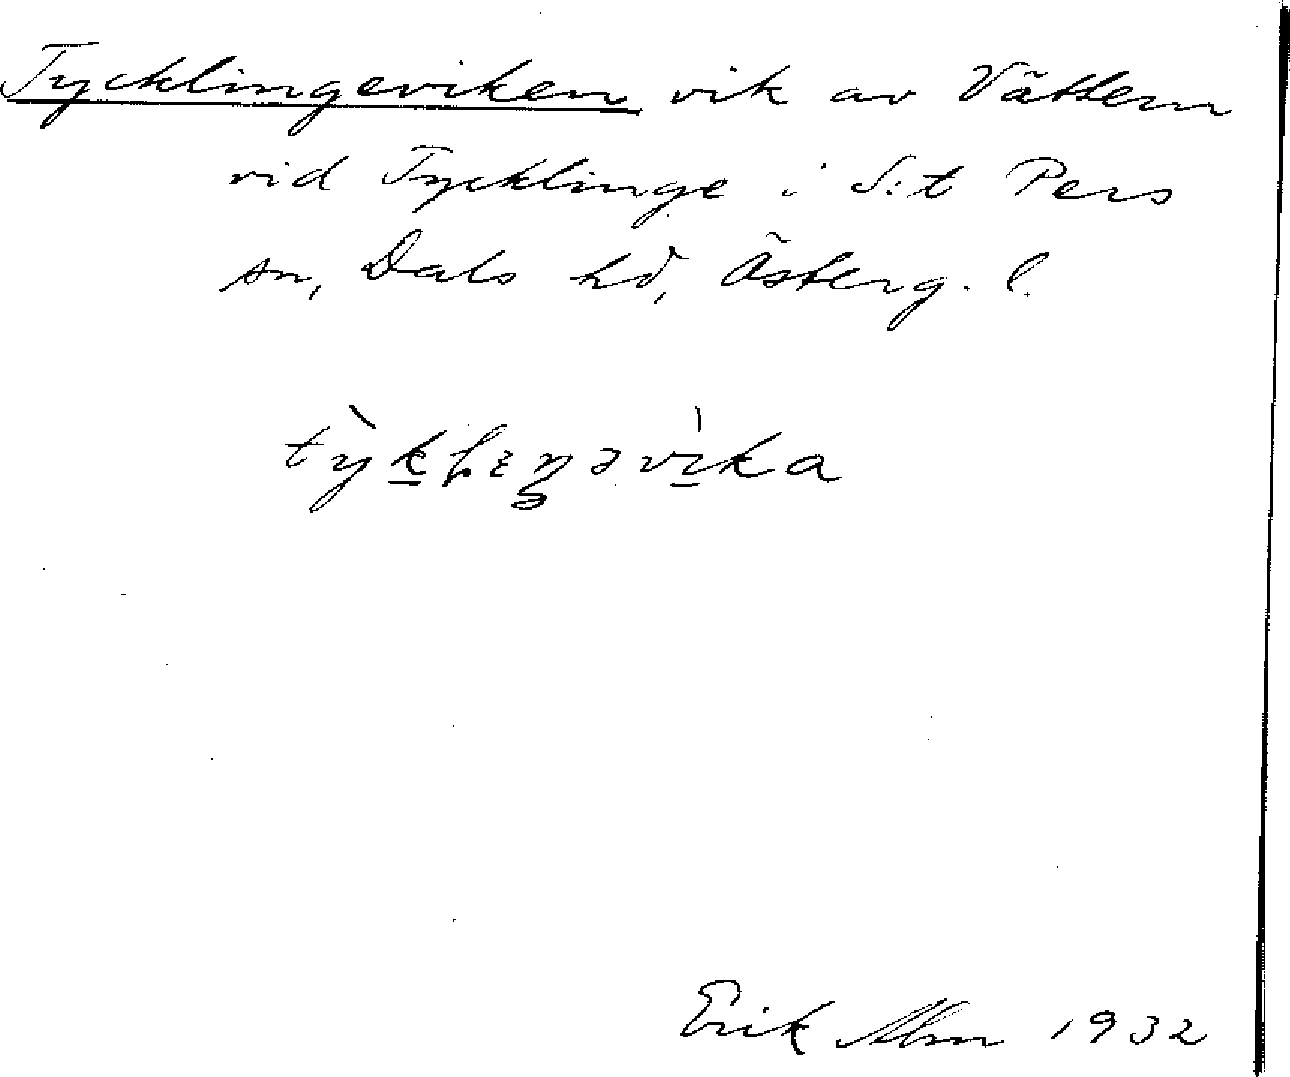 Tycklingeviken vik av Vättern
vid Tycklinge i S:t Pers
sn, Dals hd, Österg. l.
Erik Alm 1932